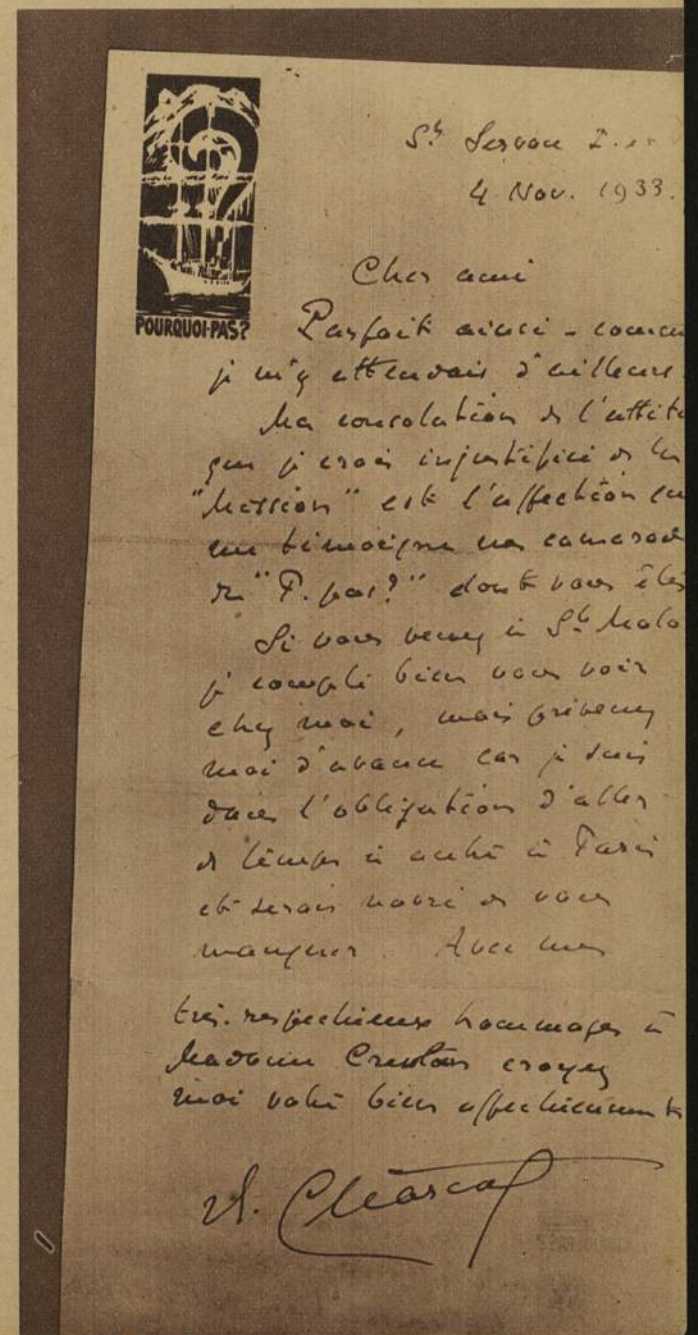 St Servan
4 Nov. 1933.
POURQUOI-PAS?
Cher ami
Parfait ainsi - comme
je m'y attendais d'ailleurs
Ma consolation de l'attit
que je crois injustifiée de la
"Mission" est l'affection
me témoigne camarades
du "P. pas?" dont vous êtes
Si vous venez à St Malo
je compte bien vous voir
chez moi, mais prévenez
moi d'avance car je suis
dans l'obligation d'aller
de temps à autre à Paris
et serais navré de vous
manquer. Avec mes
très respectueux hommages à
Madame croyez
moi votre bien affectionné
J. Charcot